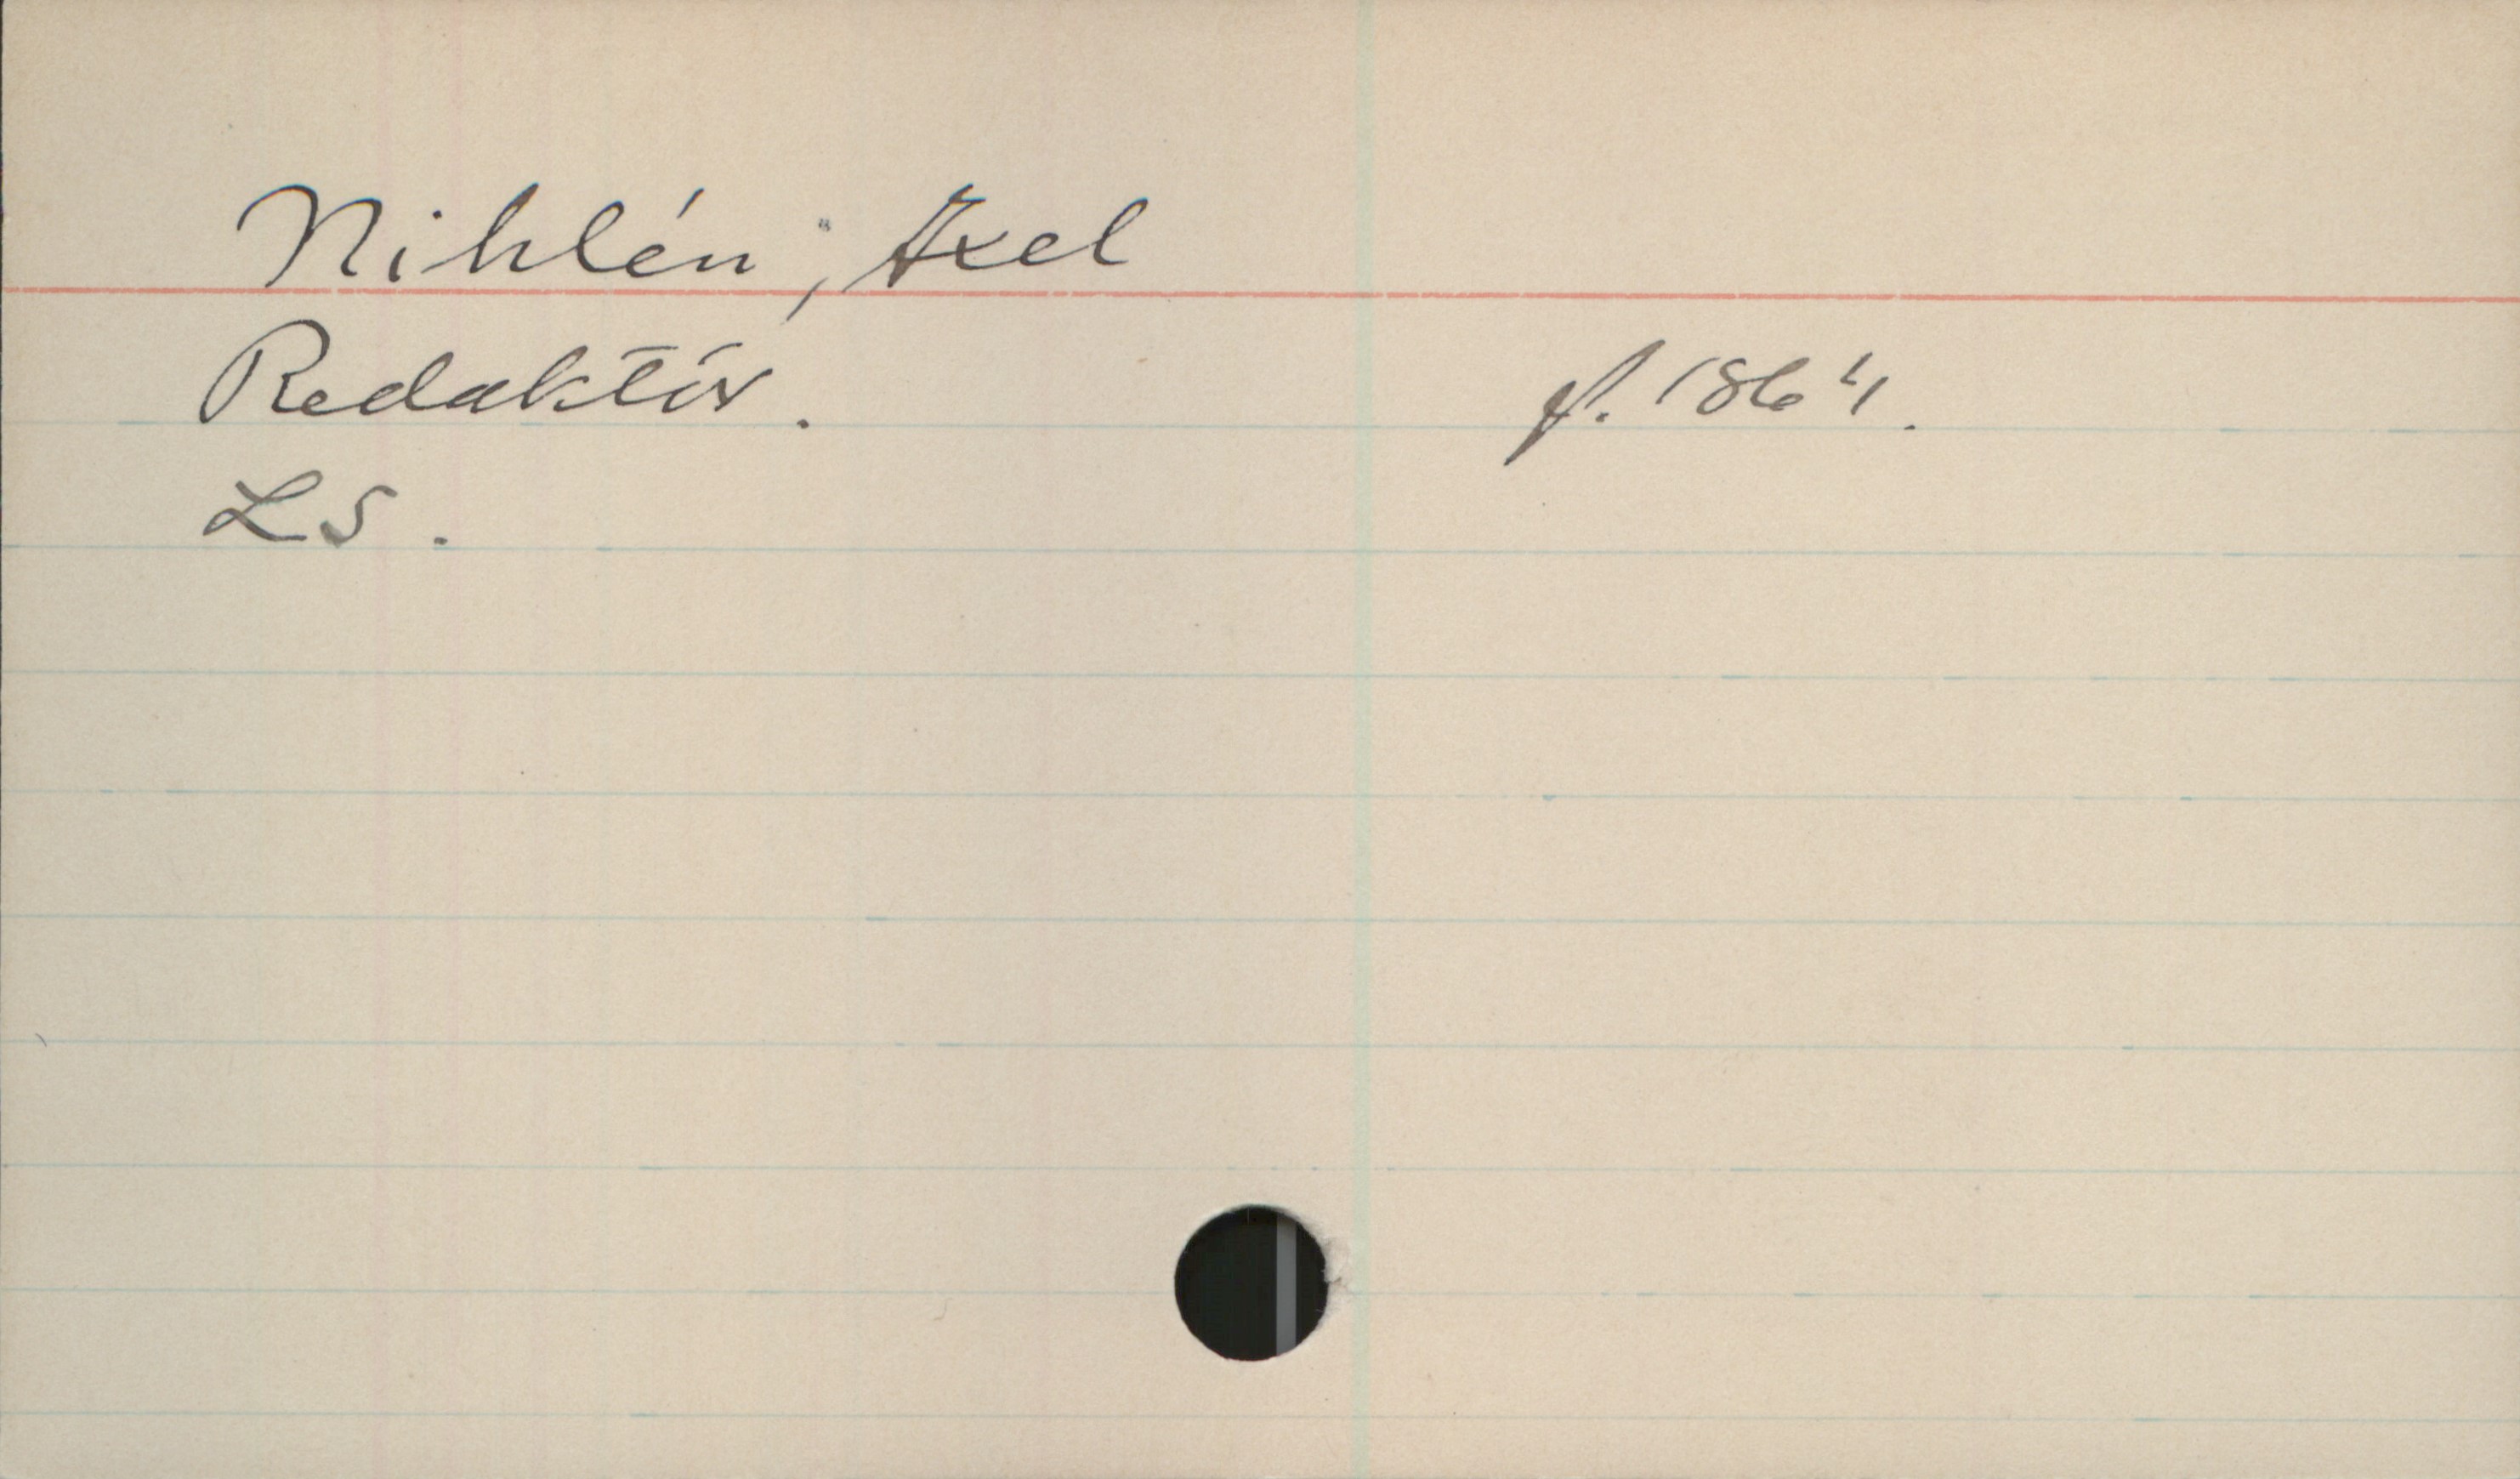 Nihlén, Axel
Redaktör. f. 1864.
LS.